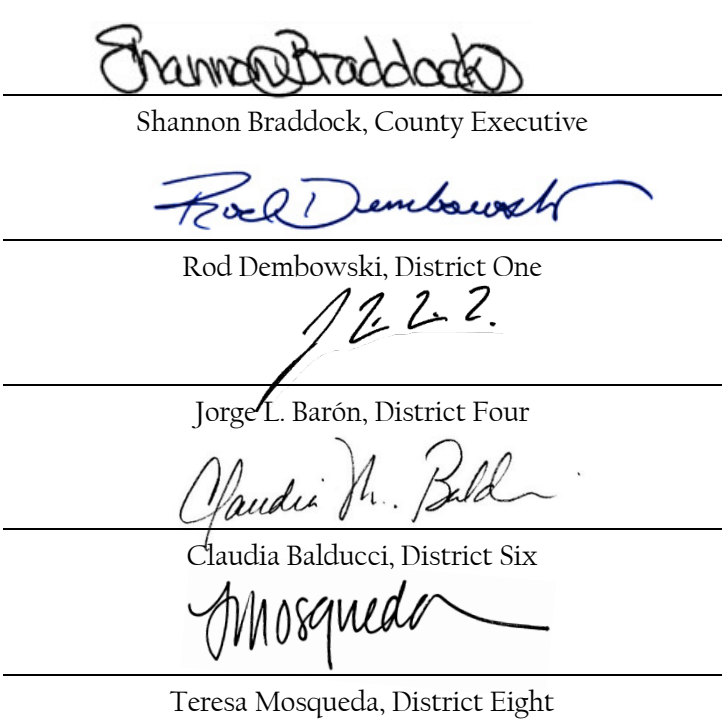 Shannon Braddock
Shannon Braddock, County Executive
Rod Dembowski
Rod Dembowski, District One
Jorge L. Barón, District Four
Claudia M. Balducci
Claudia Balducci, District Six
TMosqueda
Teresa Mosqueda, District Eight